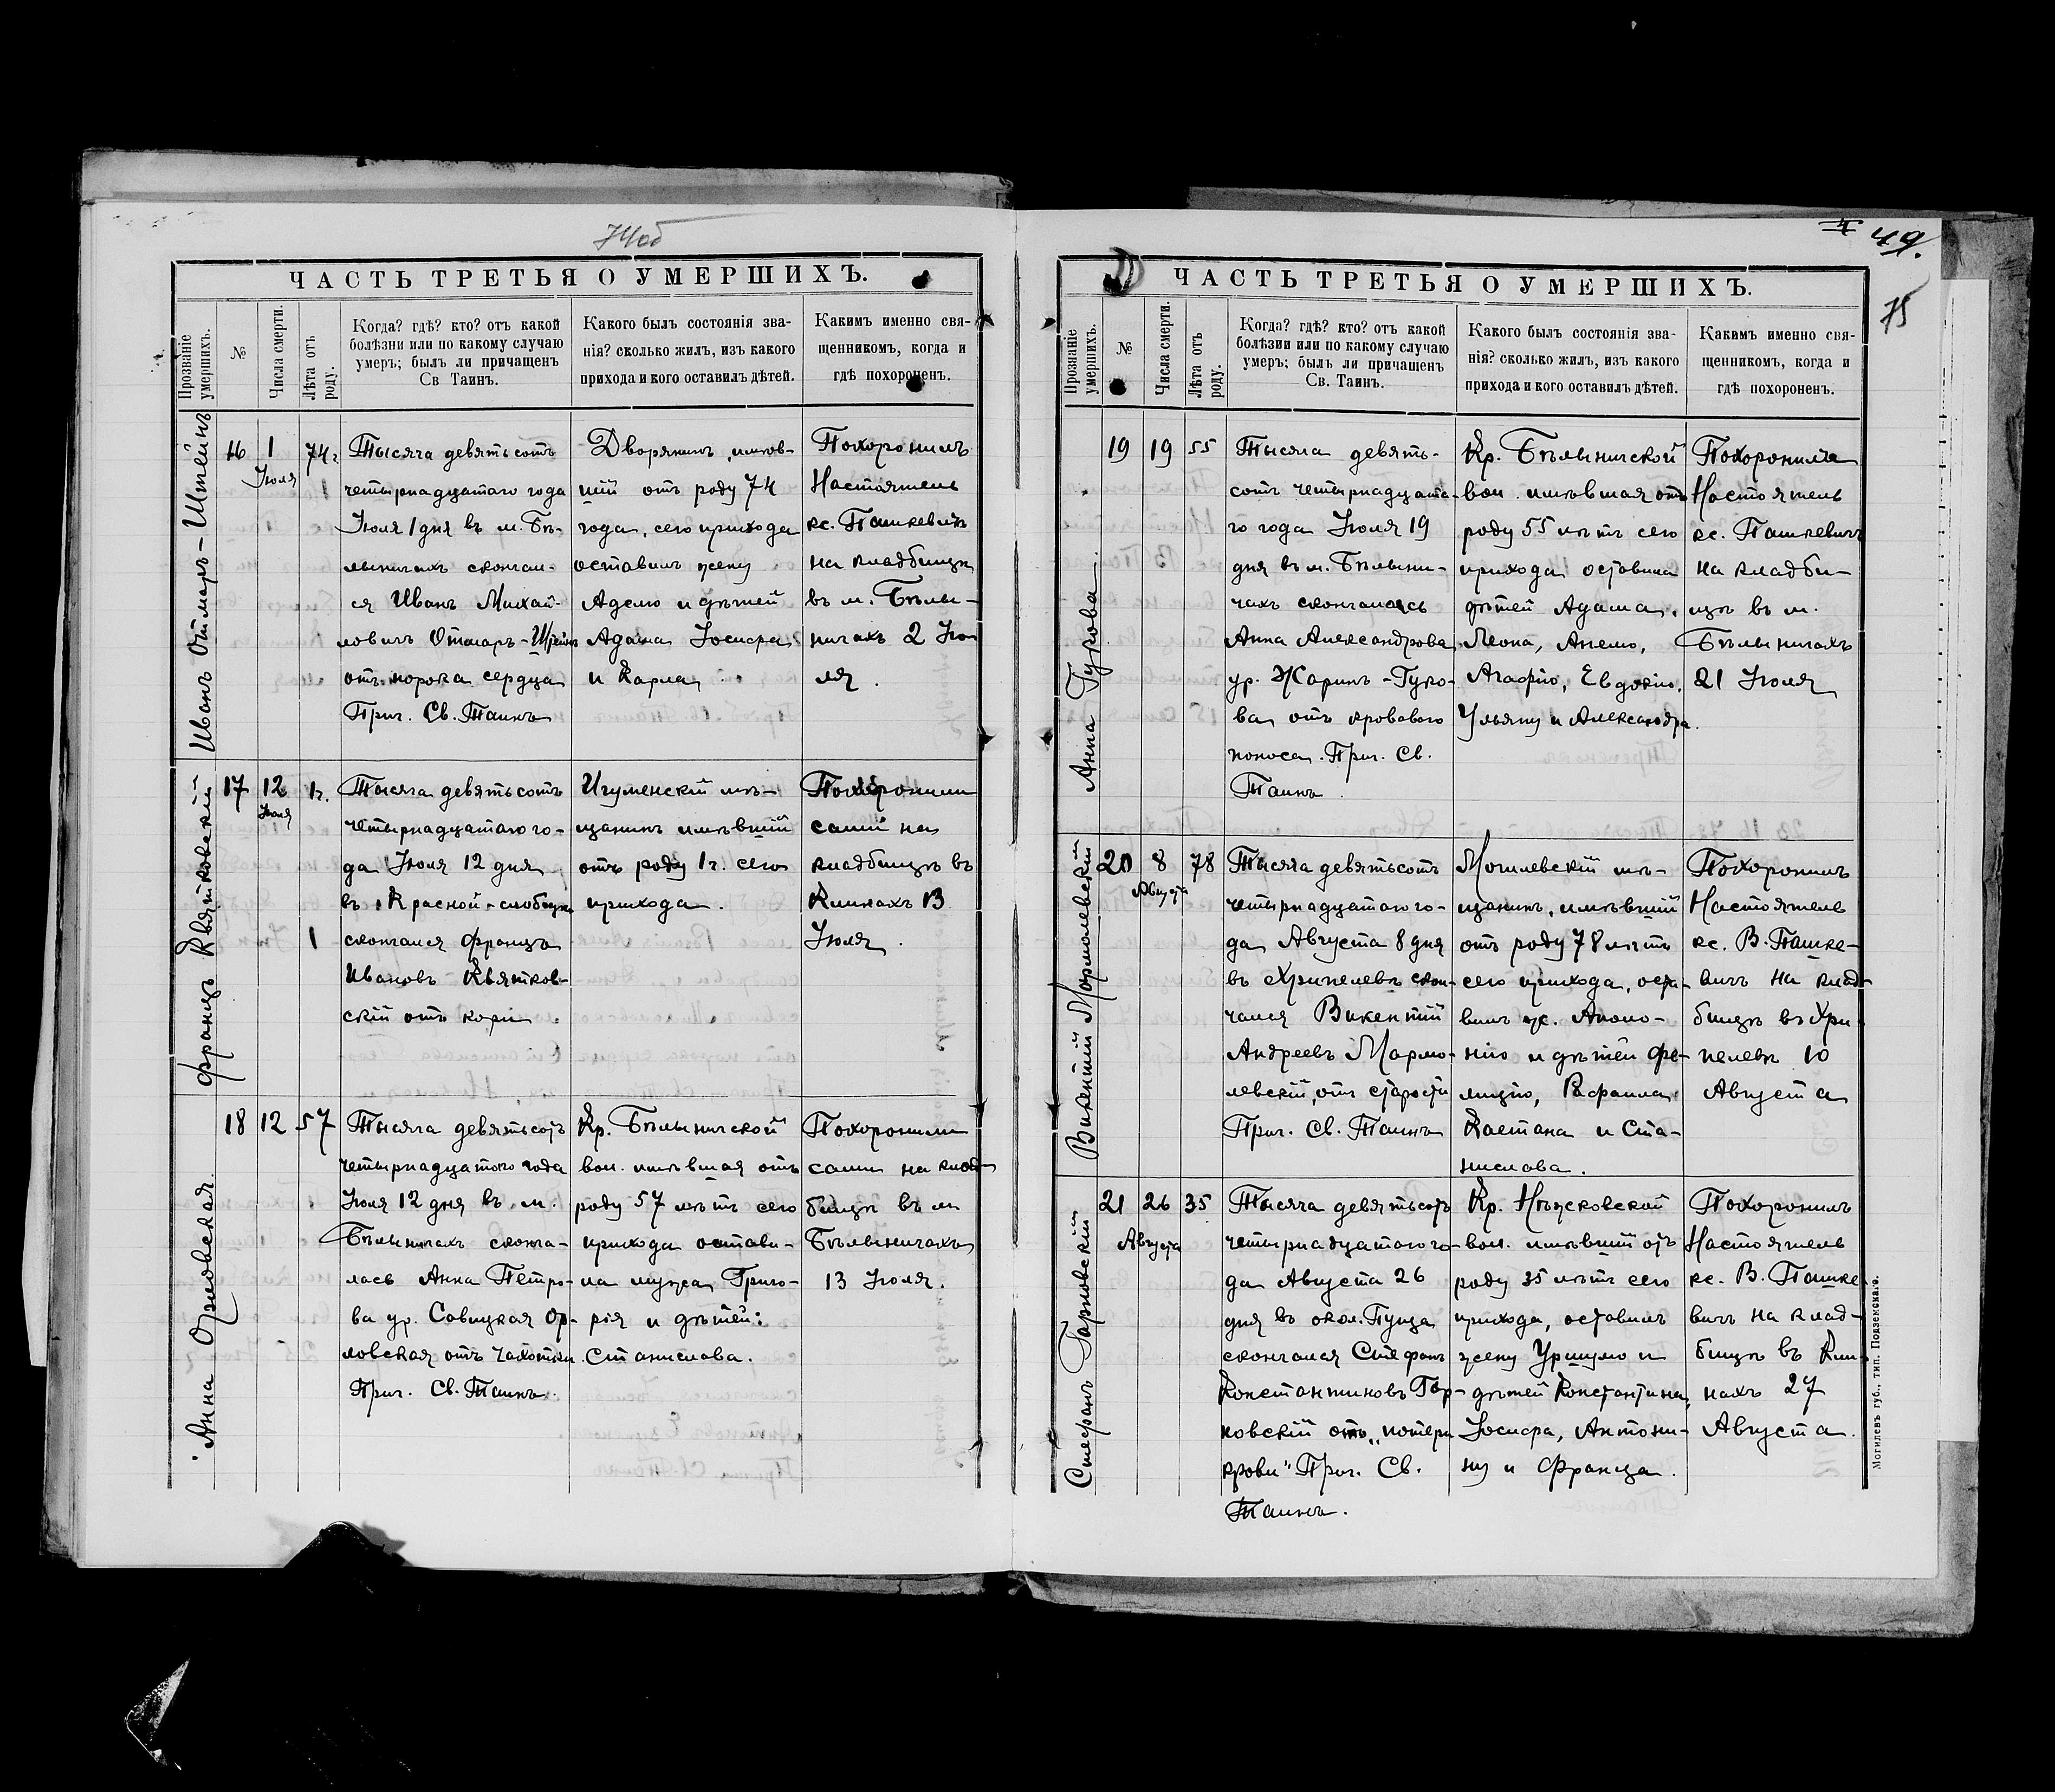 74об
ЧАСТЬ ТРЕТЬЯ О УМЕРШИХЪ.
Прозваніе умершихъ.
№
Числа смерти.
Лѣта отъ роду.
Когда? гдѣ? кто? отъ какой
болѣзни или по какому случаю
умеръ; былъ ли причащенъ
Св Таинъ.
Какого былъ состоянія зва-
нія? сколько жилъ, изъ какого
прихода и кого оставилъ дѣтей.
Каким​ъ именно свя-
щенникомъ, когда и
гдѣ похороненъ.
Иванъ Отмаръ-Штейнъ
16
1
Іюля
74 г
Тысяча девятьсотъ
четырнадцатаго года
Іюля 1 дня въ м. Бѣ-
лыничахъ скончал-
ся Иванъ Михай-
ловичъ Отмаръ-Штейнъ
отъ порока сердца
Прич. Св. Таинъ
Дворянинъ, имѣв-
шій отъ роду 74
года, сего прихода
оставилъ жену
Аделю и дѣтей
Адама, Іосифа
и Карла
Похоронилъ
Настоятель
кс. Пашкевичъ
на кладбищѣ
въ м. Бѣлы-
ничахъ 2 Ію
ля.
Францъ Квятковскій
17
12
Іюля
1 г.
1
Тысяча девятьсотъ
четырнадцатаго го-
да Іюля 12 дня
въ Красной-слободкѣ
скончался Францъ
Ивановъ Квятков-
скій отъ кори.
Игуменскій мѣ-
щанинъ имѣвшій
отъ роду 1 г. сего
прихода.
Похоронили
сами на
кладбищѣ въ
Клинахъ 13
Іюля.
Анна Орловская
18
12
57
Тысяча девятьсотъ
четырнадцатого года
Іюля 12 дня въ м.
Бѣлыничахъ сконча-
лась Анна Петро-
ва ур. Савицкая Ор-
ловская отъ чахотки
Прич. Св. Таинъ.
Кр. Бѣлыничской
вол. имѣвшая отъ
роду 57 лѣтъ сего
прихода остави-
ла мужа Григо-
рія и дѣтей:
Станислава.
Похоронили
сами на клад-
бищѣ въ м.
Бѣлыничахъ
13 Іюля.
49.
75
ЧАСТЬ ТРЕТЬЯ О УМЕРШИХЪ.
Прозваніе умершихъ.
№
Числа смерти.
Лѣта отъ роду.
Когда? гдѣ? кто? отъ какой
болѣзни или по какому случаю
умеръ; былъ ли причащенъ
Св. Таинъ.
Какого былъ состоянія зва-
нія? сколько жилъ, изъ какого
прихода и кого оставилъ дѣтей.
Какимъ именно свя-
щенникомъ, когда и
гдѣ похороненъ.
Анна Гурова
19
19
55
Тысяча девять-
сотъ четырнадцата-
го года Іюля 19
дня въ м. Бѣлыни-
чахъ скончалась
Анна Александрова
ур. Жаринъ-Гуро-
ва отъ кровавого
поноса. Прич. Св.
Таинъ
Кр. Бѣлыничской
вол. имѣвшая отъ
роду 55 лѣтъ сего
прихода оставила
дѣтей Адама,
Леона, Анелю,
Агафію, Евдокію,
Ульяну и Александра.
Похоронилъ
Настоятель
кс. Пашкевичъ
на кладби-
щѣ въ м.
Бѣлыничахъ
21 Іюля
Викентій Мармолевскій
20
8
Августа
78
Тысяча девятьсотъ
четырнадцатаго го-
да Августа 8 дня
въ Хрипелевѣ скон-
чался Викентій
Андреевъ Мармо-
левскій, отъ старости
Прич. Св. Таинъ
Могилевскій мѣ-
щанинъ, имѣвшій
отъ роду 78 лѣтъ
сего прихода, оста-
вилъ ж. Аполо-
нію и дѣтей Фе-
лицію, Рафаила
Каетана и Ста-
нислава.
Похоронилъ
Настоятель
кс. В. Пашке-
вичъ на клад-
бищѣ въ Хри-
пелевѣ 10
Августа
Стефанъ Гарновскій
21
26
Августа
35
Тысяча девятьсотъ
четырнадцатаго го-
да Августа 26
дня въ окол. Пуща
скончался Стефанъ
Константиновъ Гар-
новскій отъ „потери
крови" Прич. Св.
Таинъ.
Кр. Нѣжковской
вол. имѣвшій отъ
роду 35 лѣтъ сего
прихода, оставилъ
жену Уршулю и
дѣтей Константина,
Іосифа, Антони-
ну и Франца.
Похоронилъ
Настоятель
кс. В. Пашке
вичъ на клад-
бищѣ въ Кли-
нахъ 27
Августа.
Могилевъ губ., тип. Подземска​го.